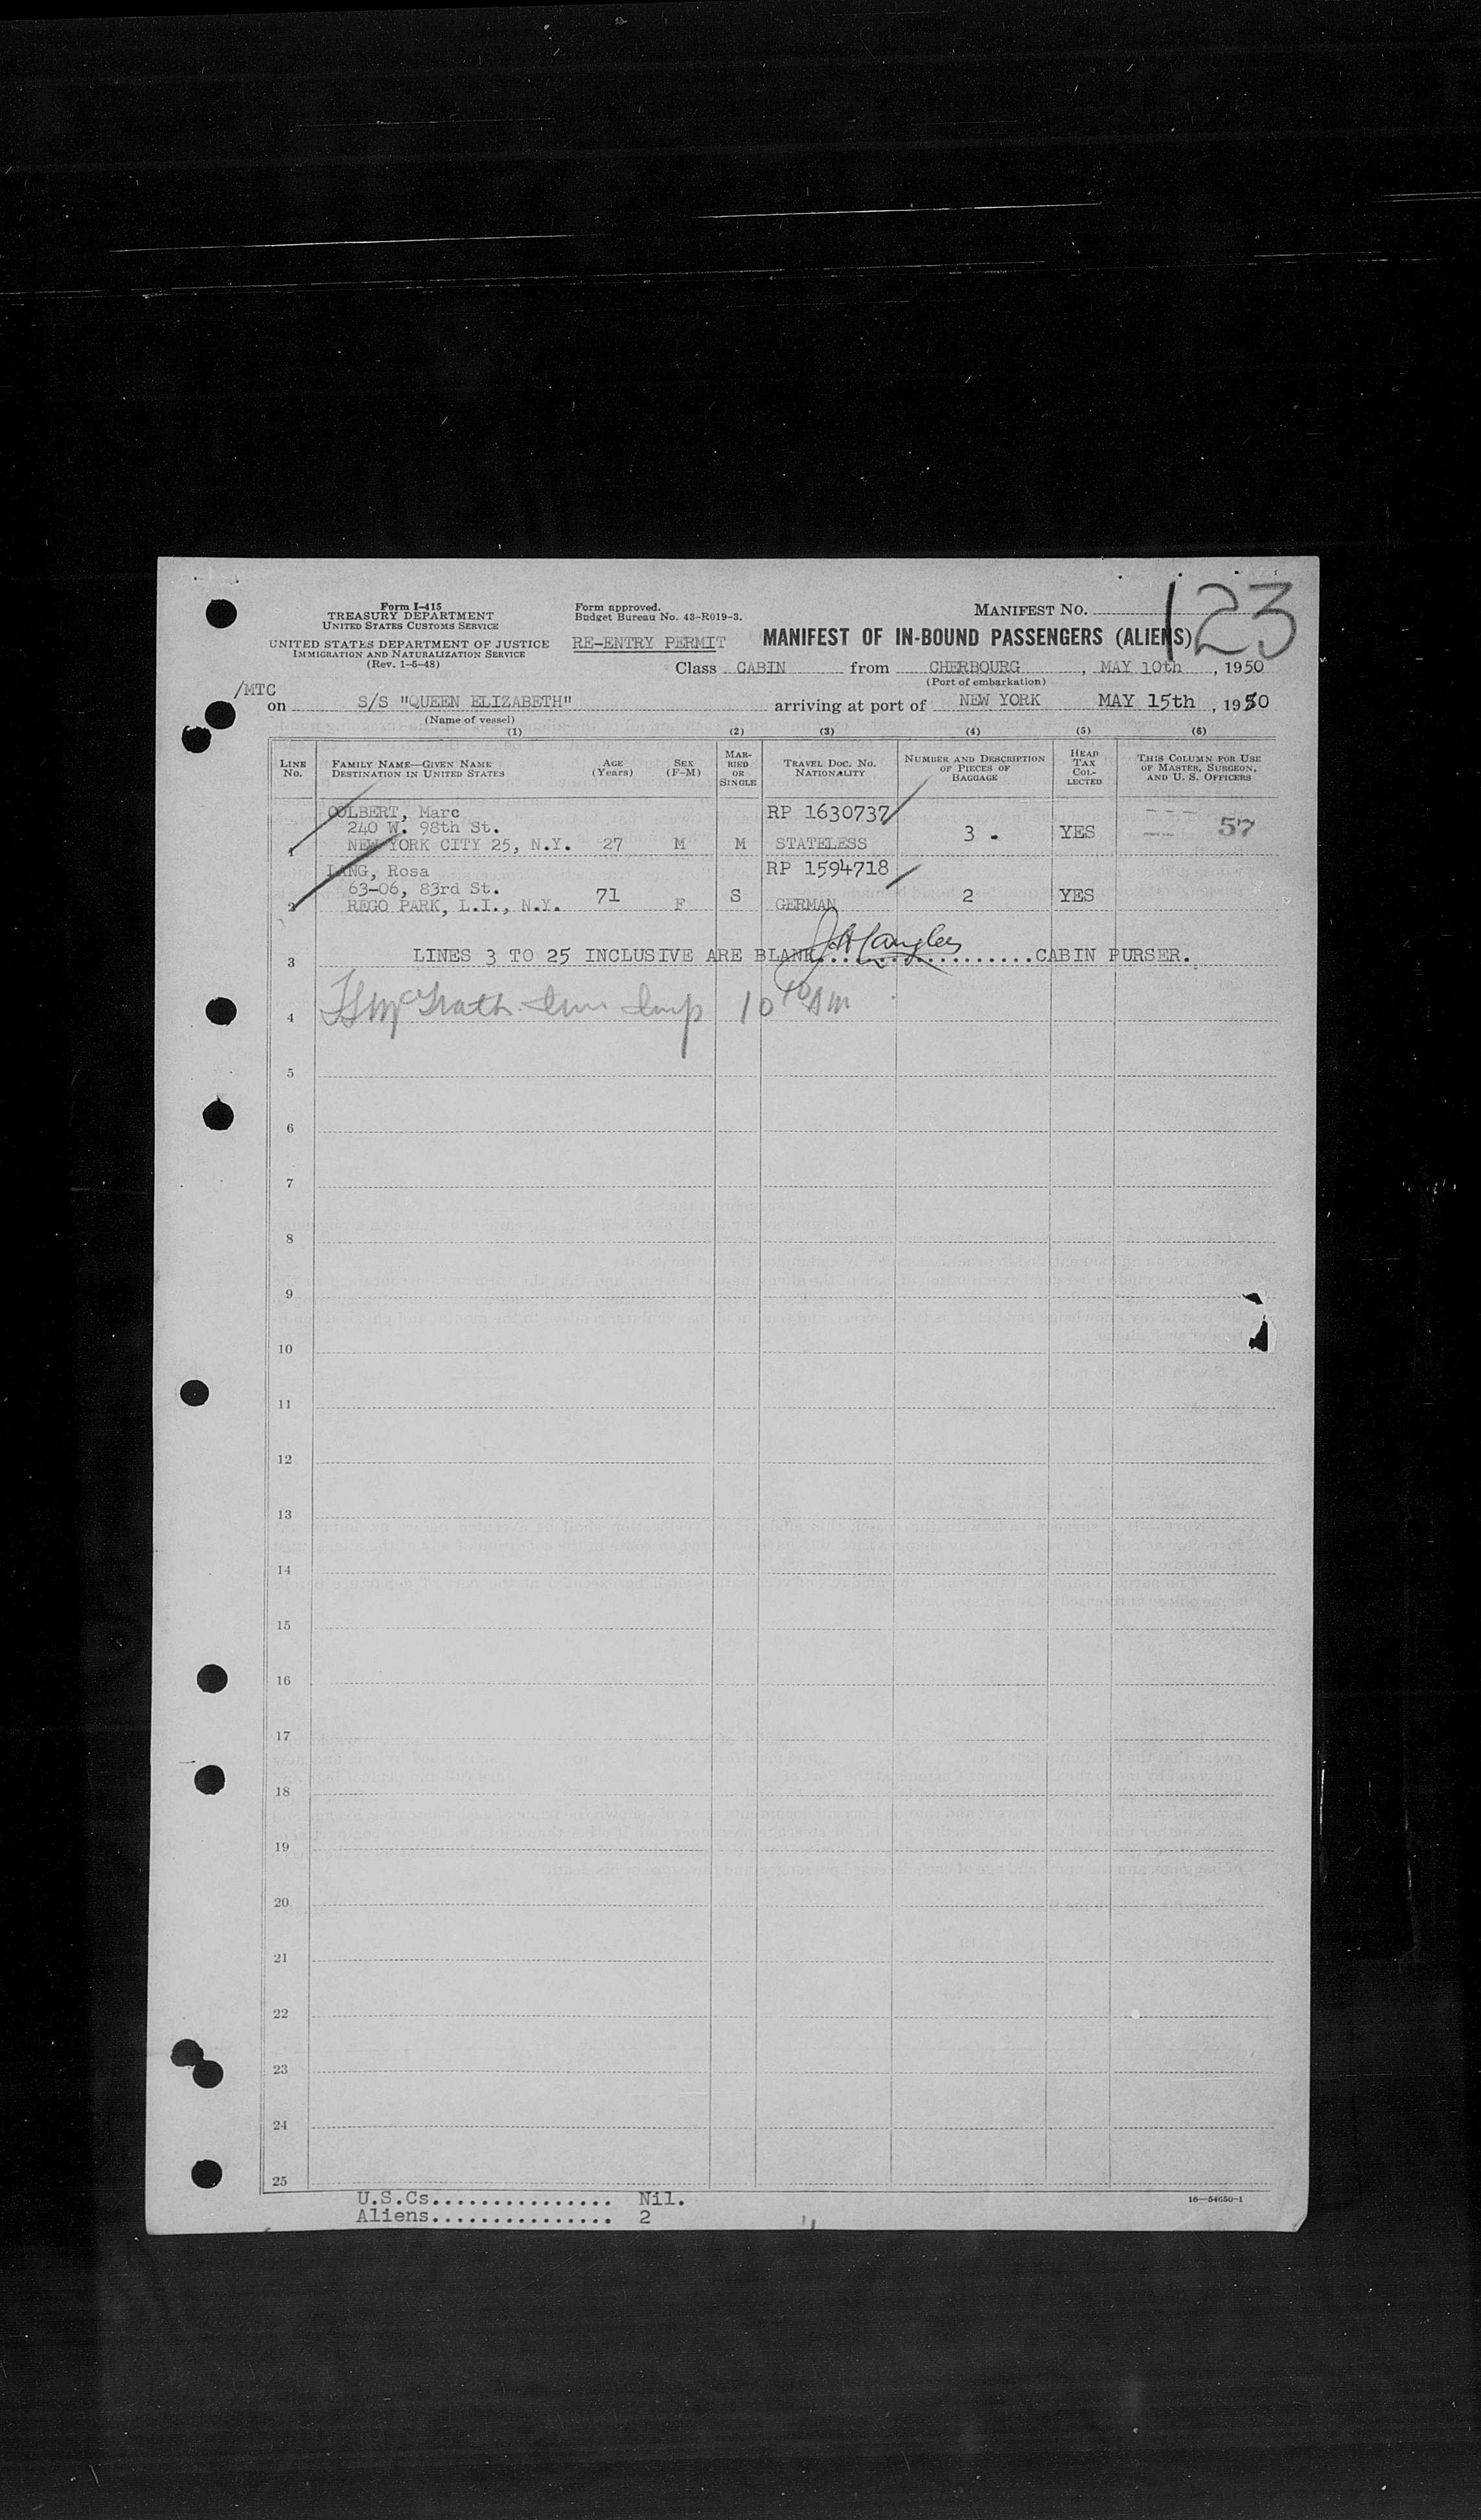 Form I-415
TREASURY DEPARTMENT
UNITED STATES CUSTOMS SERVICE
UNITED STATES DEPARTMENT OF JUSTICE
IMMIGRATION AND NATURALIZATION SERVICE
(Rev. 1-6-48)
Form approved.
Budget Bureau No. 43-R019-3.
RE-ENTRY PERMIT
MANIFEST NO. 123
MANIFEST OF IN-BOUND PASSENGERS (ALIENS)
Class CABIN from CHERBOURG, MAY 10th, 1950
(Port of embarkation)
/MTC
on S/S "QUEEN ELIZABETH" arriving at port of NEW YORK MAY 15th, 1950
(Name of vessel)
(1) (2) (3) (4) (5) (6)
LINE NO.
FAMILY NAME—GIVEN NAME
DESTINATION IN UNITED STATES
AGE (Years)
SEX (F-M)
MARRIED OR SINGLE
TRAVEL DOC. NO.
NATIONALITY
NUMBER AND DESCRIPTION OF PIECES OF BAGGAGE
HEAD TAX COLLECTED
THIS COLUMN FOR USE OF MASTER, SURGEON, AND U. S. OFFICERS
COLBERT, Marc RP 1630737
240 W. 98th St. 3 - YES 57
1 NEW YORK CITY 25, N.Y. 27 M M STATELESS
LANG, Rosa RP 1594718
63-06, 83rd St. 71 S 2 YES
2 REGO PARK, L.I., N.Y. F GERMAN
3 LINES 3 TO 25 INCLUSIVE ARE BLANK. CABIN PURSER.
4 McGrath Imm Insp 10 10 AM
5
6
7
8
9
10
11
12
13
14
15
16
17
18
19
20
21
22
23
24
25
U.S.Cs............... Nil.
Aliens............... 2
16—54650-1